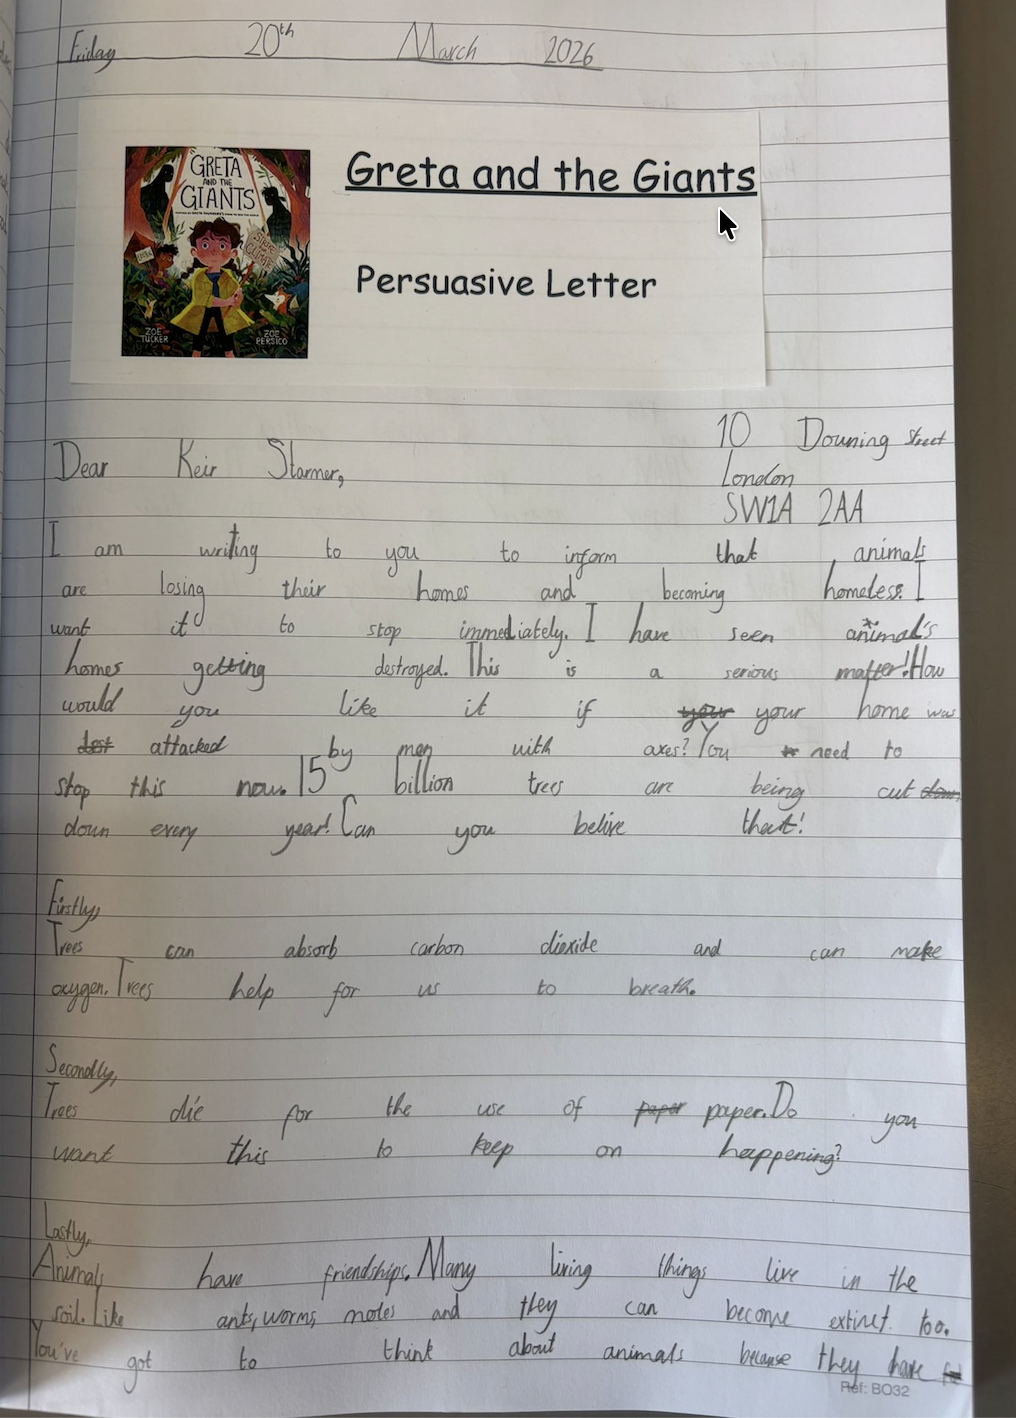 Friday 20th March 2026
GRETA
AND THE
GIANTS
STRIKE
CLIMATE
ZOE
TUCKER
ZOE
PERSICO
Greta and the Giants
Persuasive Letter
10 Downing Street
London
SW1A 2AA
Dear Keir Starmer,
I am writing to you to inform that animals
are losing their homes and becoming homeless. I
want it to stop immediately. I have seen animal's
homes getting destroyed. This is a serious matter! How
would you like it if your your home was
dest attacked by men with axes? You need to
stop this now. 15 billion trees are being cut down,
down every year! Can you belive that!
Firstly,
Trees can absorb carbon dioxide and can make
oxygen. Trees help for us to breath.
Secondly,
Trees die for the use of paper paper. Do you
want this to keep on happening?
Lastly,
Animals have friendships. Many living things live in the
soil. Like ants, worms, moles and they can become extinct too.
You've got to think about animals because they have
Ref: BO32